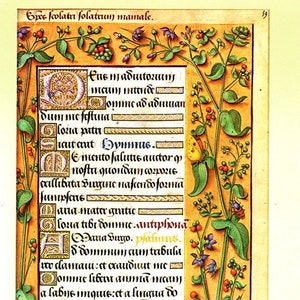 Spes scolatri solatrum mamale.
Deus in adiutorium
meum intende
Domine ad adiuuan
dum me festina
Gloria patri
Sicut erat Hymnus.
Memento salutis auctor q
nostri quondam corporis
ex illibata virgine nascendo forma
sumpseris
Maria mater gratie
Gloria tibi domine antiphona
Maria virgo. psalmus.
Ad dominum cum tribula
rer clamaui: et exaudiuit me
Domine libera animam meam
a labijs iniquis: et a lingua d